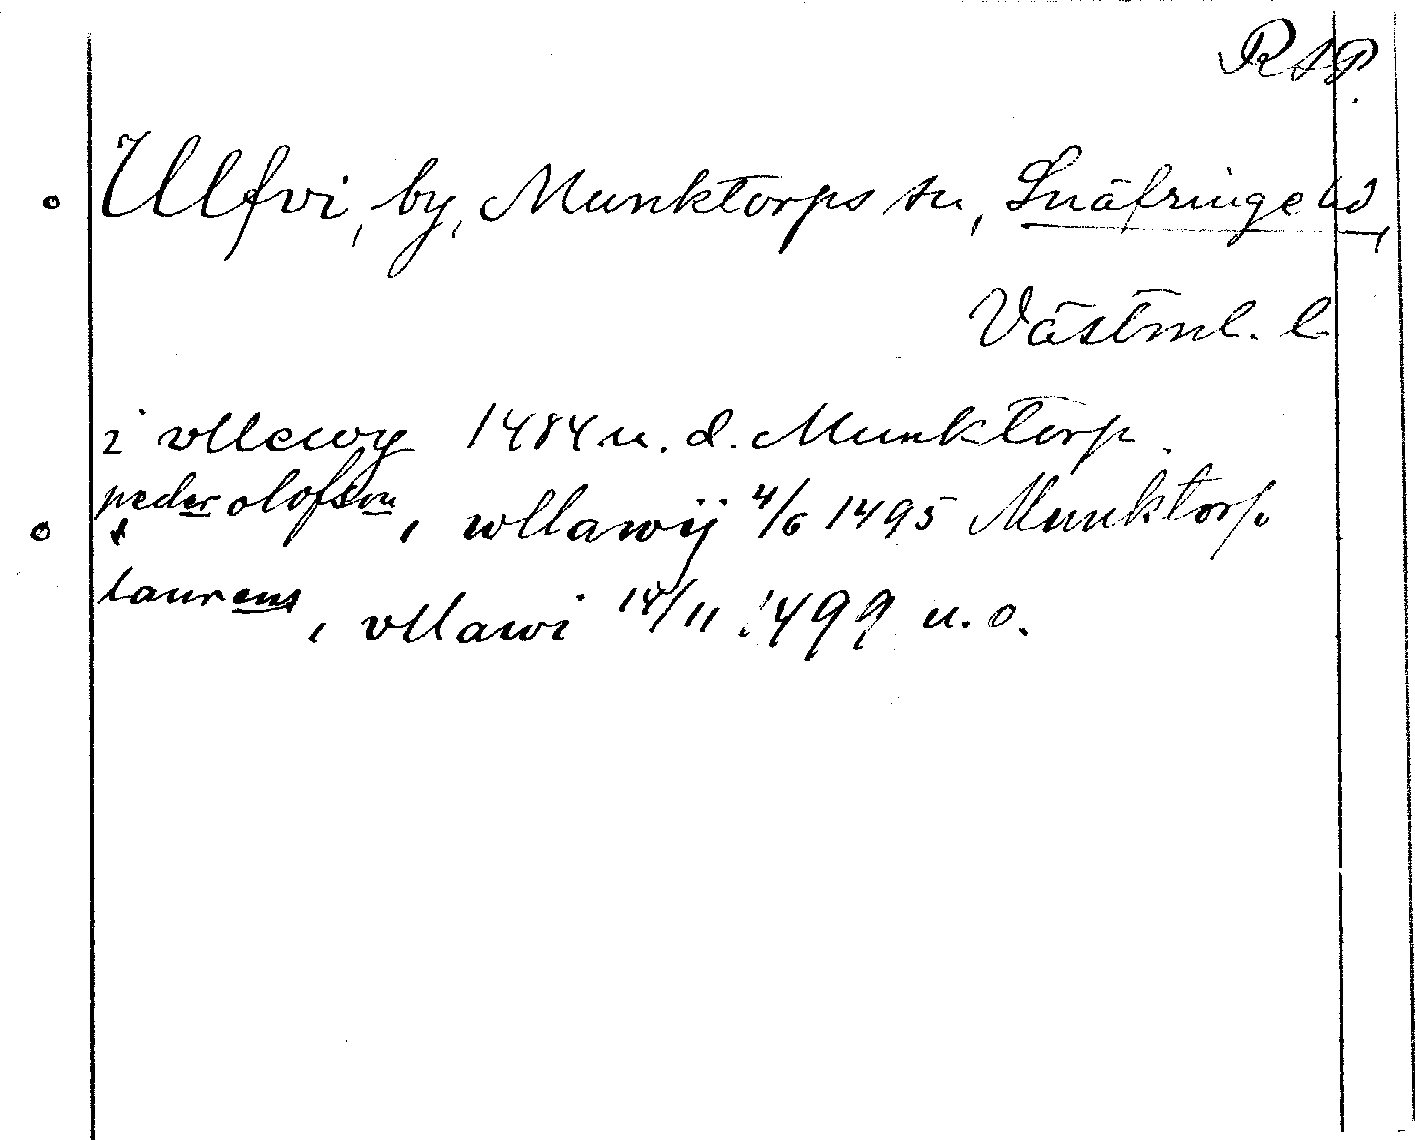 RAP.
Ulfvi, by, Munktorps sn, Snäfringe hd,
Västml. l
i vllewy 1484 u. d. Munktorp.
peder olofson, wllawij 4/6 1495 Munktorp.
laurens, vllawi 14/11 1499 u. o.